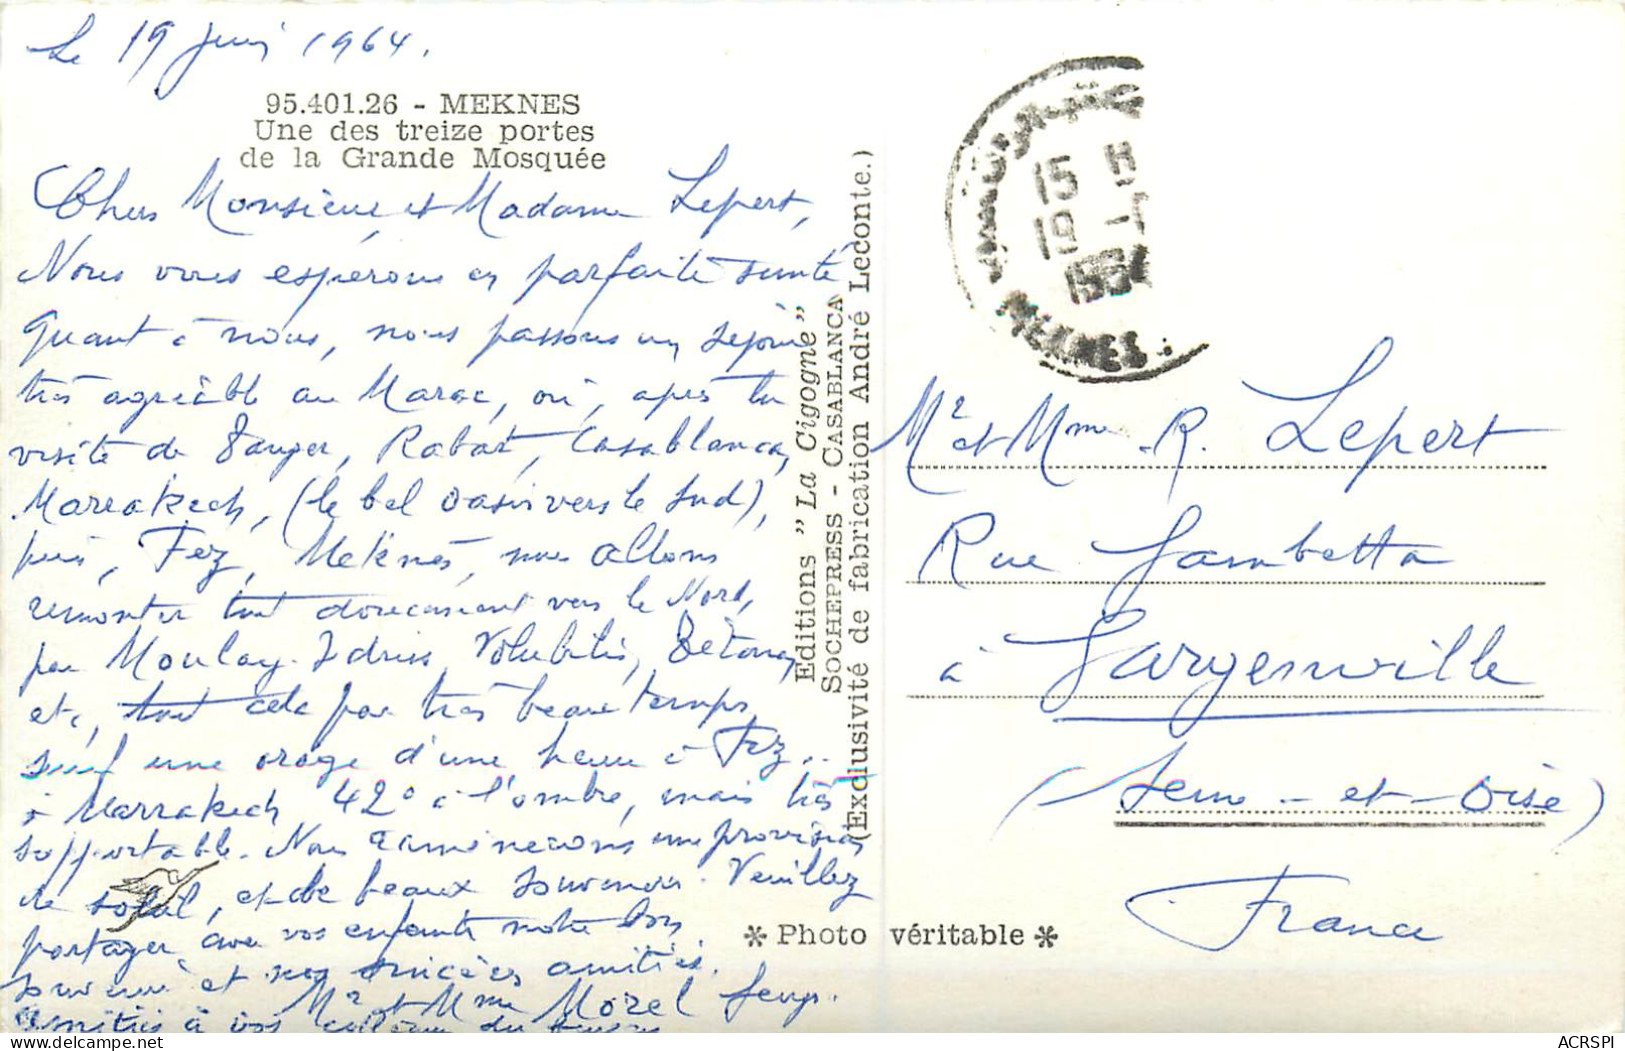 Le 19 juin 1964.
95.401.26 - MEKNES
Une des treize portes
de la Grande Mosquée
Chers Monsieur et Madame Lepert,
Nous vous espérons en parfaite santé
Quant à nous, nous passons un séjour
très agréable au Maroc, où, après la
visite de Tanger, Rabat, Casablanca,
Marrakech, (le bel oasis vers le sud),
puis, Fez, Meknès, nous allons
remonter tout doucement vers le Nord,
par Moulay-Idriss, Volubilis, Tétouan,
etc, tout cela par très beau temps,
sauf une orage d'une heure à Fez..
à Marrakech 42° à l'ombre, mais très
supportable. Nous ramènerons une provision
de soleil, et de beaux souvenirs. Veuillez
partager avec vos enfants notre bon
souvenir et nos sincères amitiés.
Mr et Mme Morel
amitiés à vos du
Editions "La Cigogne"
SOCHEPRESS - CASABLANCA
(Exclusivité de fabrication André Leconte.)
15 H
19 -
1964
MEKNES
Mr et Mme R. Lepert
Rue Gambetta
à Gargenville
(Seine-et-Oise)
France
* Photo véritable *
ACRSPI